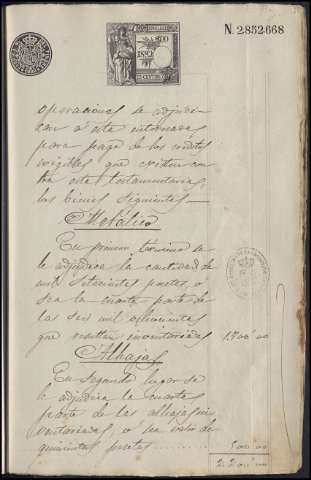 N. 2.852.668
operaciones se adjudi-
can a esta interesada
para pago de los créditos
exigibles que existen con-
tra esta testamentaria,
los bienes siguientes—
Metálico
En primer término se
le adjudica la cantidad de
mil setecientas pesetas, o
sea la cuarta parte de
las seis mil ochocientas
que resultan inventariadas 1.700 00
Alhajas
En segundo lugar se
le adjudica la cuarta
parte de las alhajas in-
ventariadas, o sea valor de
quinientas pesetas 500 00
2.200 00